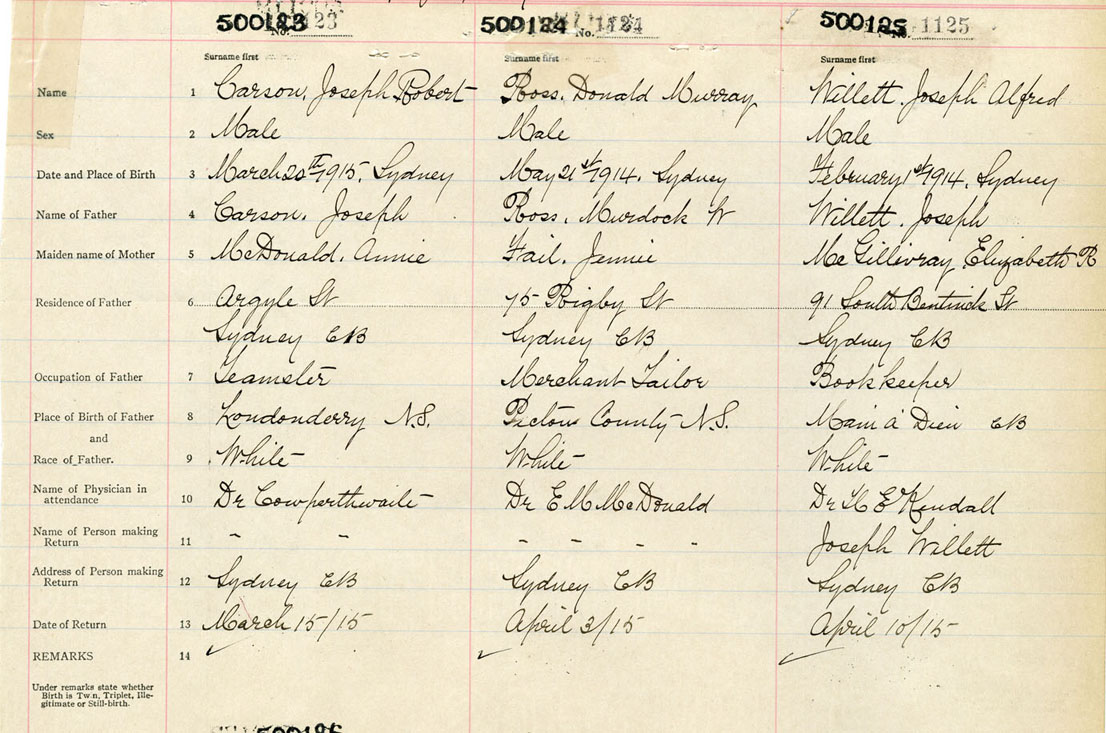 500183 500184 500185
No. 1123 No. 1124 No. 1125
Surname first Surname first Surname first
Name 1 Carson, Joseph Robert Ross, Donald Murray Willett, Joseph Alfred
Sex 2 Male Male Male
Date and Place of Birth 3 March 20th 1915, Sydney May 21st 1914, Sydney February 1st 1914, Sydney
Name of Father 4 Carson, Joseph Ross, Murdock W Willett, Joseph
Maiden name of Mother 5 McDonald, Annie Fail, Jennie McGillivray, Elizabeth R
Residence of Father 6 Argyle St 75 Rigby St 91 South Bentinck St
Sydney CB Sydney CB Sydney CB
Occupation of Father 7 Teamster Merchant Tailor Bookkeeper
Place of Birth of Father 8 Londonderry N.S. Pictou County N.S. Main à Dieu CB
and
Race of Father. 9 White White White
Name of Physician in
attendance 10 Dr Cowperthwaite Dr E M McDonald Dr H E Kendall
Name of Person making
Return 11 - - - - - - Joseph Willett
Address of Person making
Return 12 Sydney CB Sydney CB Sydney CB
Date of Return 13 March 15/15 April 3/15 April 10/15
REMARKS 14
Under remarks state whether
Birth is Twin, Triplet, Ille-
gitimate or Still-birth.